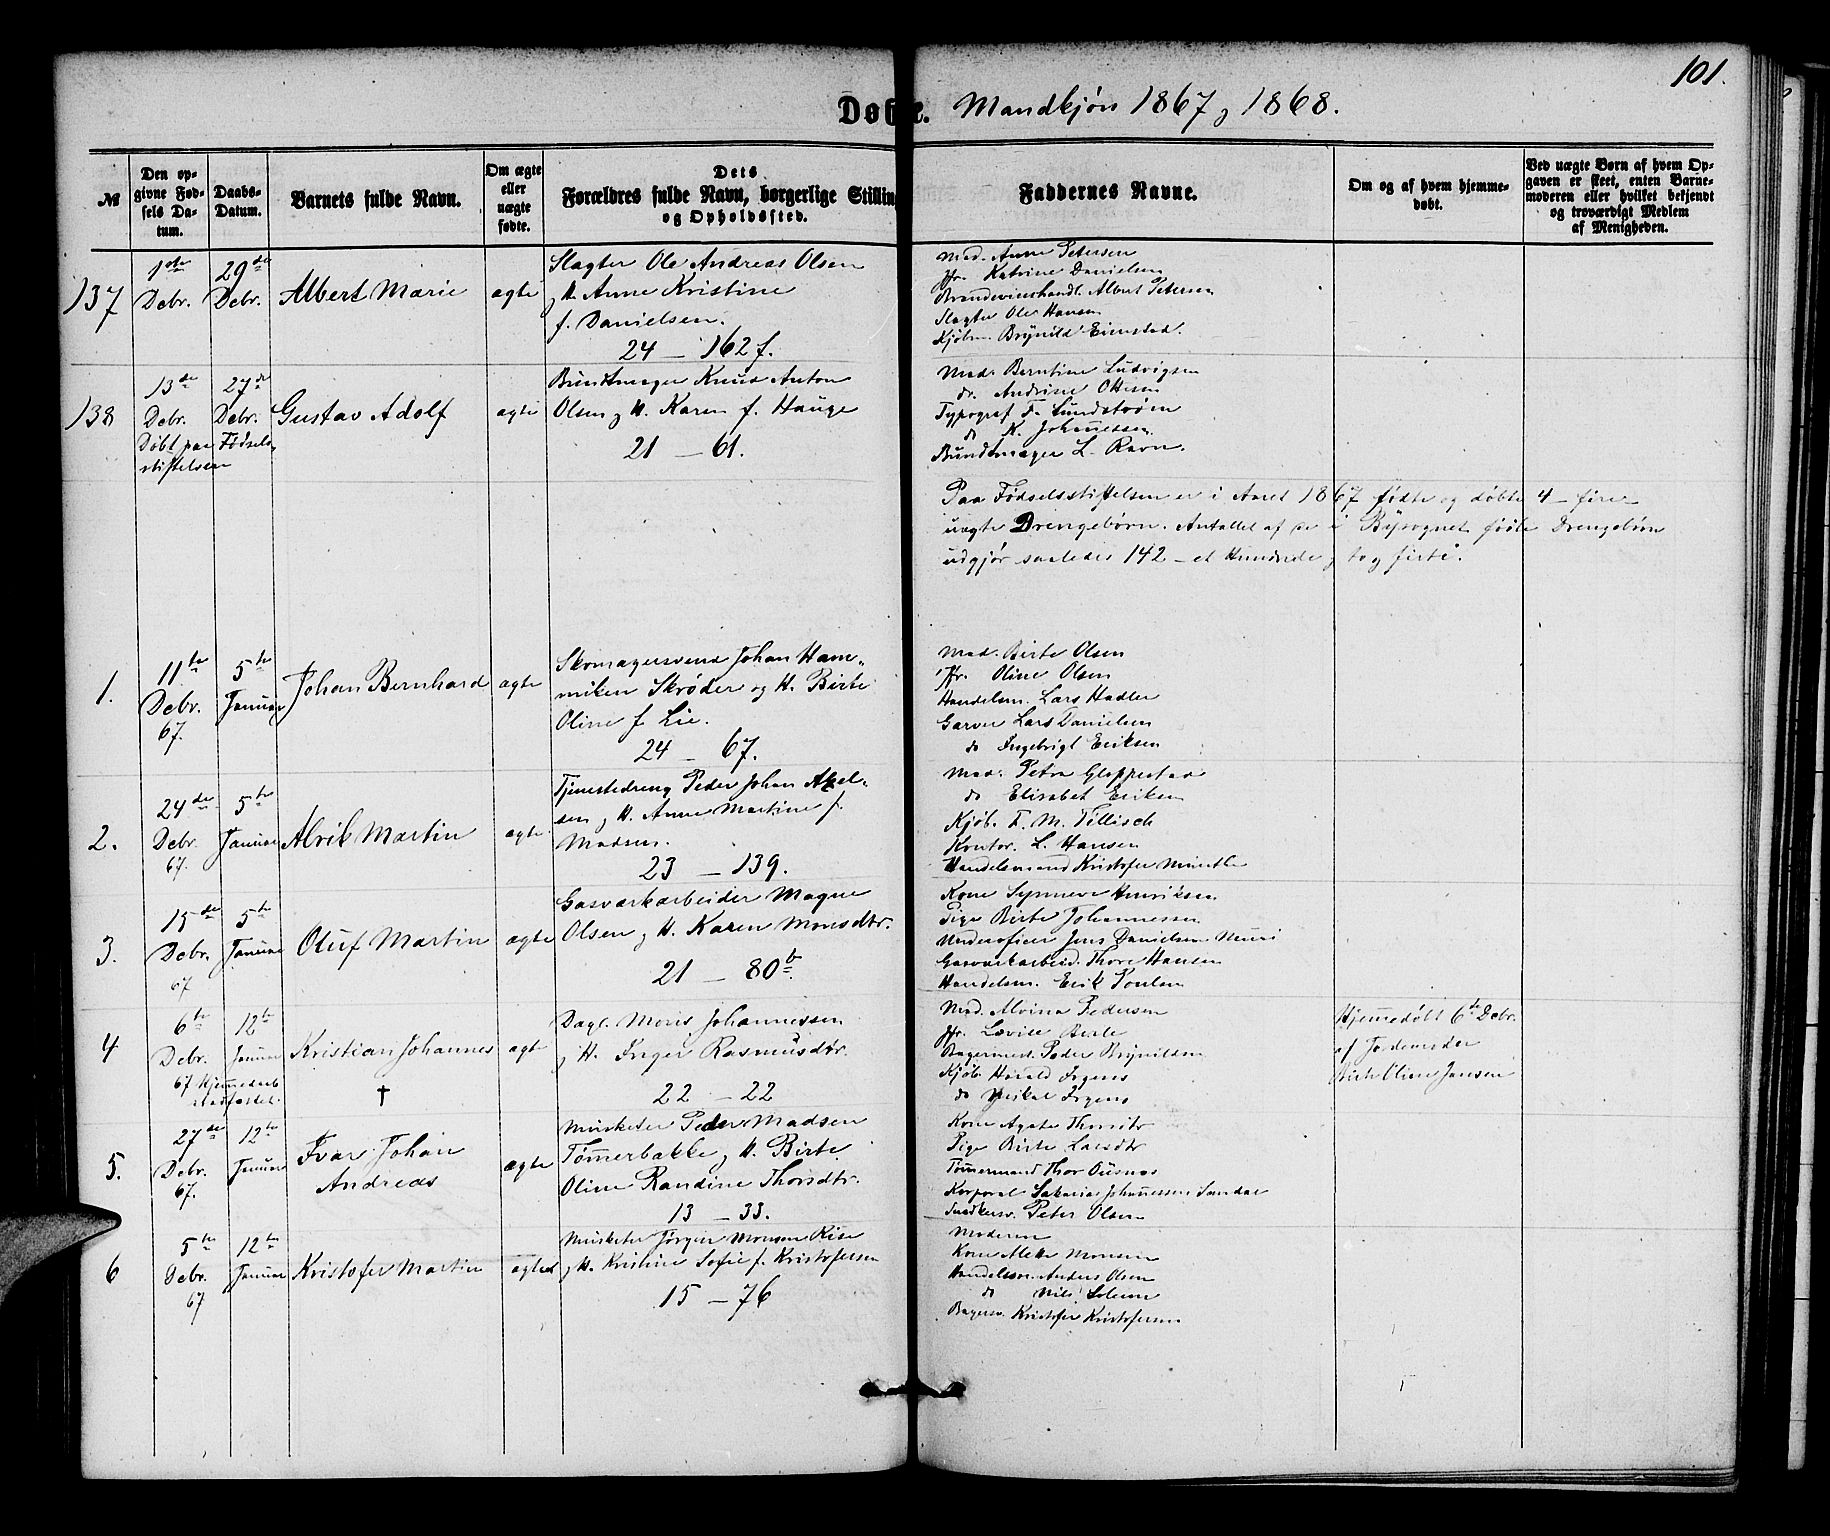 101.
Døbte. Mandkjøn 1867 og 1868.
№
Den opgivne Fødsels Datum.
Daabs-Datum.
Barnets fulde Navn.
Om ægte eller uægte fødte.
Dets Forældres fulde Navn, borgerlige Stilling og Opholdssted.
Faddernes Navne.
Om og af hvem hjemmedøbt.
Ved uægte Børn af hvem Opgaven er skeet, enten Barnemoderen eller hvilket bekjendt og troværdigt Medlem af Menigheden.
137
1ste Debr.
29de Debr.
Albert Marie
ægte
Slagter Ole Andreas Olsen
og H. Anne Kristine
f. Danielsen.
24 – 162 f.
Mad. Anne Petersen
Jfr. Katrine Danielsen
Brændevinshandl. Albert Petersen
Slagter Ole Hansen
Kjøbm. Brynild Eienstad.
138
13de Debr.
27de Debr.
Døbt paa Fødselsstiftelsen
Gustav Adolf
ægte
Bundtmager Knud Anton
Olsen og H. Karen f. Hauge
21 – 61.
Mad. Berntine Ludvigsen
do. Andrine Ottesen
Typograf F. Lundstrøm
do K. Johannessen
Bundtmager L. Ravn.
Paa Fødselsstiftelsen er i Aaret 1867 fødte og døbte 4 – fire
uægte Drengebørn. Antallet af de i Bysognet fødte Drengebørn
udgjør saaledes 142 – et Hundrede og to og firti.
1.
11te Debr. 67.
5te Januar
Johan Bernhard
ægte
Skomagersvend Johan Hem-
miken Skrøder og H. Birte
Oline f. Lie.
24 – 67.
Mad. Birte Olsen
Jfr. Oline Olsen
Handelsm. Lars Hadler
Garver Lars Danielsen
do Ingebrigt Eriksen
2.
24de Debr. 67.
5te Januar
Alrik Martin
ægte
Tjenestedreng Peder Johan Axel-
sen og H. Anne Martine f.
Madsen.
23 – 139.
Mad. Petra Gloppestad
do Elisabet Eriksen
Kjøb. F. M. Tillisch
Kontor. L. Hansen
Handelsmand Kristofer Minthe
3.
15de Debr. 67
5te Januar
Oluf Martin
ægte
Gasværkarbeider Magne
Olsen og H. Karen Monsdtr.
21 – 80b.
Kone Synneve Henriksen
Pige Birte Johannessen
Underoficer Jens Danielsen Muri
Gasværkarbeid. Thore Hansen
Handelsm. Erik Poulsen
4
6te Debr. 67
12te Januar
Hjemmedaab stadfæstet.
Kristian Johannes
†
ægte
Dagl. Moris Johannessen
og H. Inger Rasmusdtr.
22 – 22
Mad. Alvina Pedersen
Jfr. Lovise Berle
Bagermest. Peder Brynildsen
Kjøb. Harald Irgens
do Mikal Irgens
Hjemmedøbt 6te Debr.
af Jordemoder
Birte Oline Jansen
5.
27de Debr. 67.
12te Januar
Ivar Johan
Andreas
ægte
Musketer Peder Madsen
Tømmerbakke og H. Birte
Oline Randine Thorsdtr.
13 – 33.
Kone Agate Thorsdtr
Pige Birte Larsdtr
Tømmermand Thor Ousnes
Korporal Sakarias Johannessen Sandal
Snedkersv. Peter Olsen
6
5te Debr. 67
12te Januar
Kristofer Martin
ægted
Musketer Jørgen Monsen Rise
og H. Kristine Sofie f. Kristofersen
15 – 76
Moderen
Kone Mette Monsen
Handelsm. Anders Olsen
do Nils Solem
Bagersv. Kristofer Kristofersen